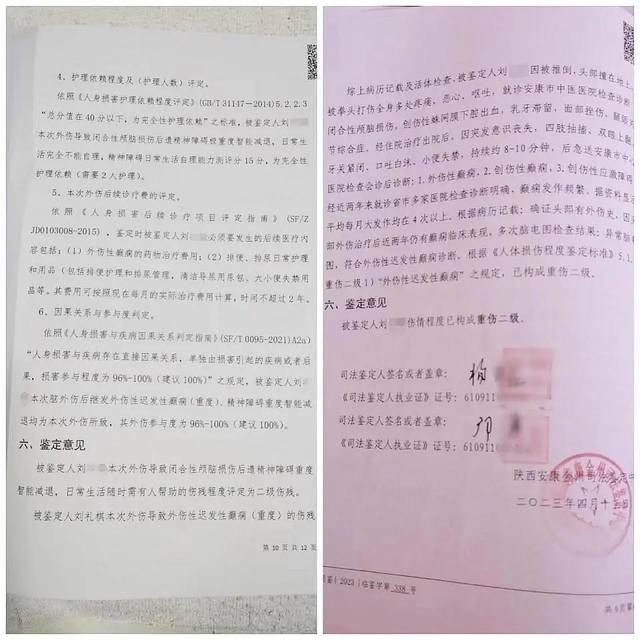 4、护理依赖程度及（护理人数）评定。
依照《人身损害护理依赖程度评定》(GB/T31147—2014)5.2.2.3
“总分值在40分以下，为完全性护理依赖”之标准，被鉴定人刘
本次外伤导致闭合性颅脑损伤后遗精神障碍极重度智能减退，日常生
活完全不能自理，精神障碍日常生活自理能力测评分15分，为完全性
护理依赖（需要2人护理）。
5、本次外伤后续诊疗费的评定。
依照《人身损害后续诊疗项目评定指南》(SF/Z
JD0103008-2015)，鉴定时被鉴定人刘 必须要发生的后续医疗
内容包括：(1)外伤性癫痫的药物治疗费用；(2)排便、排尿日常护理
和用品（包括排便护理和排尿管理，清洁导尿用尿包、大小便失禁用
品等。其费用可按照现在每月的实际治疗费用计算，时间不超过2年。
6、因果关系与参与度判定。
依照《人身损害与疾病因果关系判定指南》(SF/T0095-2021)A2a)
“人身损害与疾病存在直接因果关系，单独由损害引起的疾病或者后
果，损害参与程度为96%-100%（建议100%）”之规定，被鉴定人刘
本次脑外伤后继发外伤性迟发性癫痫（重度）、精神障碍重度智能减
退均为本次外伤所致，其外伤参与度为96%-100%（建议100%）。
六、鉴定意见
被鉴定人刘 本次外伤导致闭合性颅脑损伤后遗精神障碍重度
智能减退，日常生活随时需有人帮助的伤残程度评定为二级伤残。
被鉴定人刘礼棋本次外伤导致外伤性迟发性癫痫（重度）的伤残
第10页共12页
综上病历记载及活体检查，被鉴定人刘 因被推倒，头部撞在地上
被拳头打伤全身多处疼痛，恶心，呕吐，就诊安康市中医医院检查诊断
闭合性颅脑损伤，创伤性蛛网膜下腔出血，乳牙滞留，面部挫伤，颞颌
节综合症，经住院治疗出院后，因突发意识丧失，四肢抽搐，双眼上翻
牙关紧闭，口吐白沫，小便失禁，持续约8-10分钟，后急送安康市中
医院检查会诊后诊断：1.外伤性癫痫，2.创伤性癫痫，3.创伤性应激障碍
经近两年来就诊省市多家医院检查诊断明确，癫痫发作频繁，据资料显示
平均每月大发作均在4次以上。根据病历记载：确证头部有外伤史，因
部外伤治疗后近两年仍有癫痫临床表现，多次脑电图检查结果：异常脑
图，符合外伤性迟发性癫痫诊断。根据《人体损伤程度鉴定标准》5.1.
重伤二级1）“外伤性迟发性癫痫”之规定，已构成重伤二级。
六、鉴定意见
被鉴定人刘 伤情程度已构成重伤二级。
司法鉴定人签名或者盖章：
《司法鉴定人执业证》证号：61091
司法鉴定人签名或者盖章：
《司法鉴定人执业证》证号：6109110
陕西安康金州司法鉴定中
二〇二三年四月十
[2023]临鉴字第 338 号